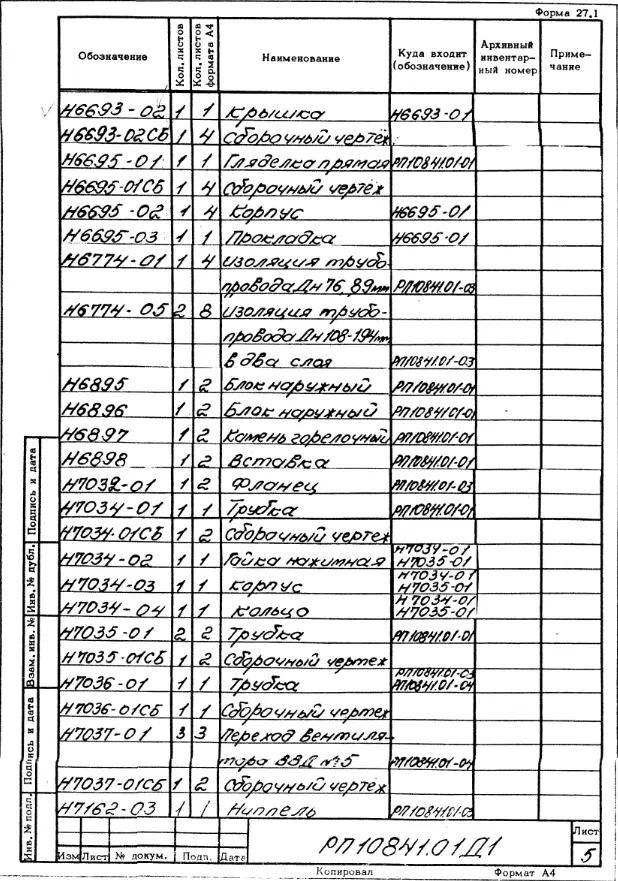 Форма 27.1
Обозначение Кол. листов Кол. листов формата А4 Наименование Куда входит (обозначение) Архивный инвентарный номер Примечание
Н6693-02 1 1 Крышка Н6693-01
Н6693-02СБ 1 4 Сборочный чертёж
Н6695-01 1 1 Гляделка прямая РП1084.01-01
Н6695-01СБ 1 4 Сборочный чертёж
Н6695-02 1 4 Корпус Н6695-01
Н6695-03 1 1 Прокладка Н6695-01
Н6774-01 1 4 Изоляция трубо-
провода Дн 76, 89мм РП1084.01-03
Н6774-05 2 8 Изоляция трубо-
провода Дн 108-194мм
в два слоя РП1084.01-03
Н6895 1 2 Блок наружный РП1084.01-01
Н6896 1 2 Блок наружный РП1084.01-01
Н6897 1 2 Камень горелочный РП1084.01-01
Н6898 1 2 Вставка РП1084.01-01
Н7032-01 1 2 Фланец РП1084.01-03
Н7034-01 1 1 Трубка РП1084.01-01
Н7034-01СБ 1 2 Сборочный чертеж
Н7034-02 1 1 Гайка нажимная Н7034-01
Н7035-01
Н7034-03 1 1 Корпус Н7034-01
Н7035-01
Н7034-04 1 1 Кольцо Н7034-01
Н7035-01
Н7035-01 2 2 Трубка РП1084.01-01
Н7035-01СБ 1 2 Сборочный чертеж
Н7036-01 1 1 Трубка РП1084.01-03
РП1084.01-04
Н7036-01СБ 1 1 Сборочный чертеж
Н7037-01 3 3 Переход вентиля-
тора ВВД №5 РП1084.01-04
Н7037-01СБ 1 2 Сборочный чертёж
Н7162-03 1 1 Ниппель РП1084.01-03
Подпись и дата
Инв. № дубл.
Взам. инв. №
Подпись и дата
Инв. № подл.
Изм Лист № докум. Подп. Дата
РП1084.01Д1
Лист
5
Копировал Формат А4